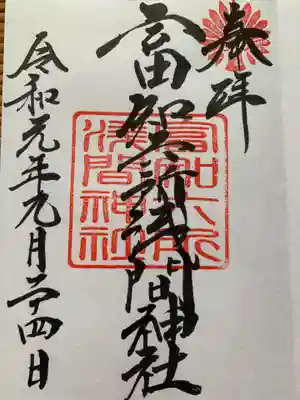 奉拝
富知六所浅間神社
令和元年九月二十四日
富知六所
浅間神社